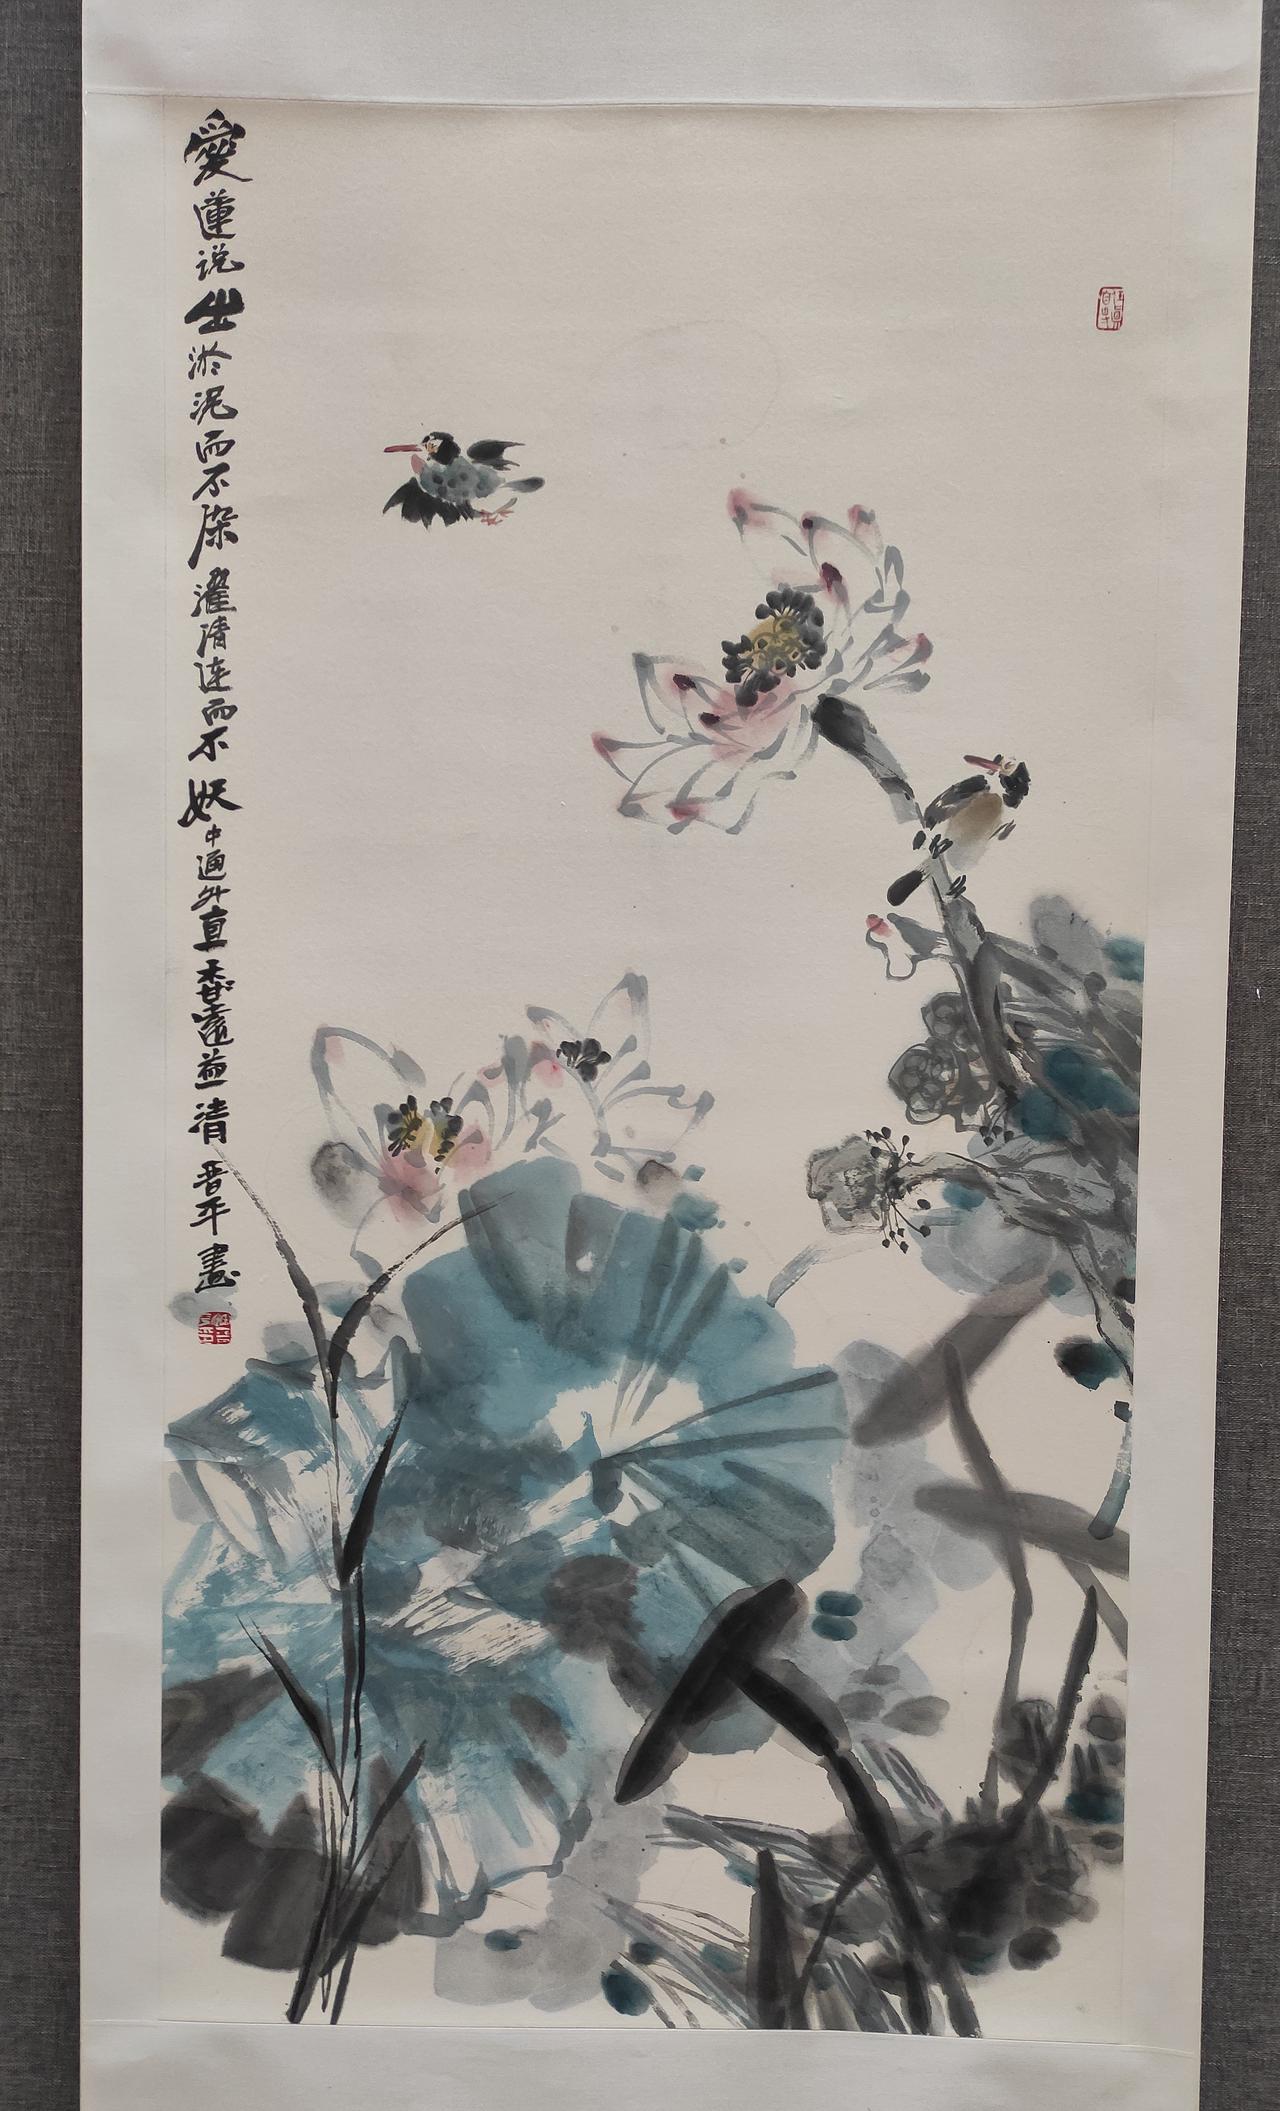 愛蓮说出淤泥而不染濯清涟而不妖中通外直香遠益清晋平畫